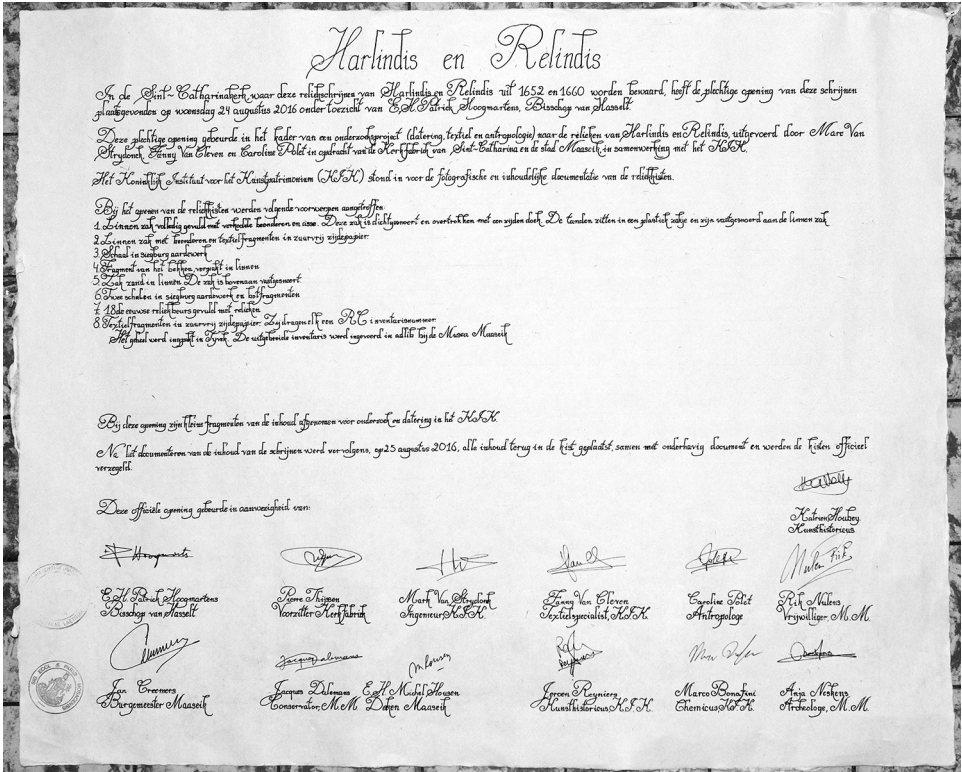 Harlindis en Relindis
In de Sint-Catharinakerk waar deze reliekschrijnen van Harlindis en Relindis uit 1652 en 1660 worden bewaard, heeft de plechtige opening van deze schrijnen
plaatsgevonden op woensdag 24 augustus 2016 onder toezicht van E.H. Patrick Hoogmartens, Bisschop van Hasselt.
Deze plechtige opening gebeurde in het kader van een onderzoeksproject (datering, textiel en antropologie) naar de relieken van Harlindis en Relindis, uitgevoerd door Marc Van
Strydonck, Fanny Van Cleven en Caroline Polet in opdracht van de Kerkfabriek van Sint-Catharina en de stad Maaseik in samenwerking met het K.I.K.
Het Koninklijk Instituut voor het Kunstpatrimonium (K.I.K.) stond in voor de fotografische en inhoudelijke documentatie van de reliekkisten.
Bij het openen van de reliekkisten werden volgende voorwerpen aangetroffen:
1. Linnen zak volledig gevuld met verkoolde beenderen en asse. Deze zak is dichtgesnoert en overtrokken met een zijden doek. De tanden zitten in een plastiek zakje en zijn vastgesnoert aan de linnen zak
2. Linnen zak met beenderen en textielfragmenten in zuurvrij zijdepapier.
3. Schaal in siegburg aardewerk
4. Fragment van het bekken, verpakt in linnen
5. Zak zand in linnen. De zak is bovenaan vastgesnoert.
6. Twee schalen in siegburg aardewerk en botfragmenten
7. 18de eeuwse reliekbeurs gevuld met relieken
8. Textielfragmenten in zuurvrij zijdepapier. Zij dragen elk een RC inventarisnummer.
Het geheel werd ingepakt in Tyvek. De uitgebreide inventaris werd ingevoerd in adlib bij de Musea Maaseik
Bij deze opening zijn kleine fragmenten van de inhoud afgenomen voor onderzoek en datering in het K.I.K.
Na het documenteren van de inhoud van de schrijnen werd vervolgens, op 25 augustus 2016, alle inhoud terug in de kist geplaatst, samen met onderhavig document en werden de kisten officieel
verzegeld.
Deze officiële opening gebeurde in aanwezigheid van:
Katrien Houbey
Kunsthistoricus
E.H. Patrick Hoogmartens
Bisschop van Hasselt
Pierre Thijssen
Voorzitter Kerkfabriek
Mark Van Strydonk
Ingenieur, K.I.K.
Fanny Van Cleven
Textielspecialist, K.I.K.
Caroline Polet
Antropologe
Rik Nulens
Vrijwilliger, M.M.
Jan Creemers
Burgemeester Maaseik
Jacques Dalemans
Conservator, M.M.
E.H. Michel Housen
Deken Maaseik
Jeroen Reyniers
Kunsthistoricus, K.I.K.
Marco Bonafini
Chemicus, K.I.K.
Anja Neskens
Archeologe, M.M.